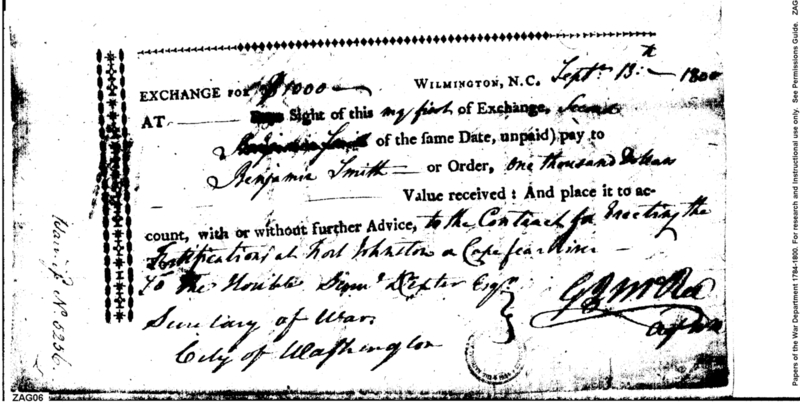 EXCHANGE FOR $1000 WILMINGTON, N.C. Septr. 13th 1800
AT Sight of this my first of Exchange, Second
of the same Date, unpaid) pay to
Benjamin Smith or Order, One thousand Dollars
Value received: And place it to ac-
count, with or without further Advice, to the Contract for Erecting the
Fortifications at Fort Johnston on Cape fear River
To The Honble Saml Dexter Esqr.
Secretary of War
City of Washington
G J McRee
Warr. N. 5256
ZAG06
Papers of the War Department 1784-1800. For research and instructional use only. See Permissions Guide. ZAG